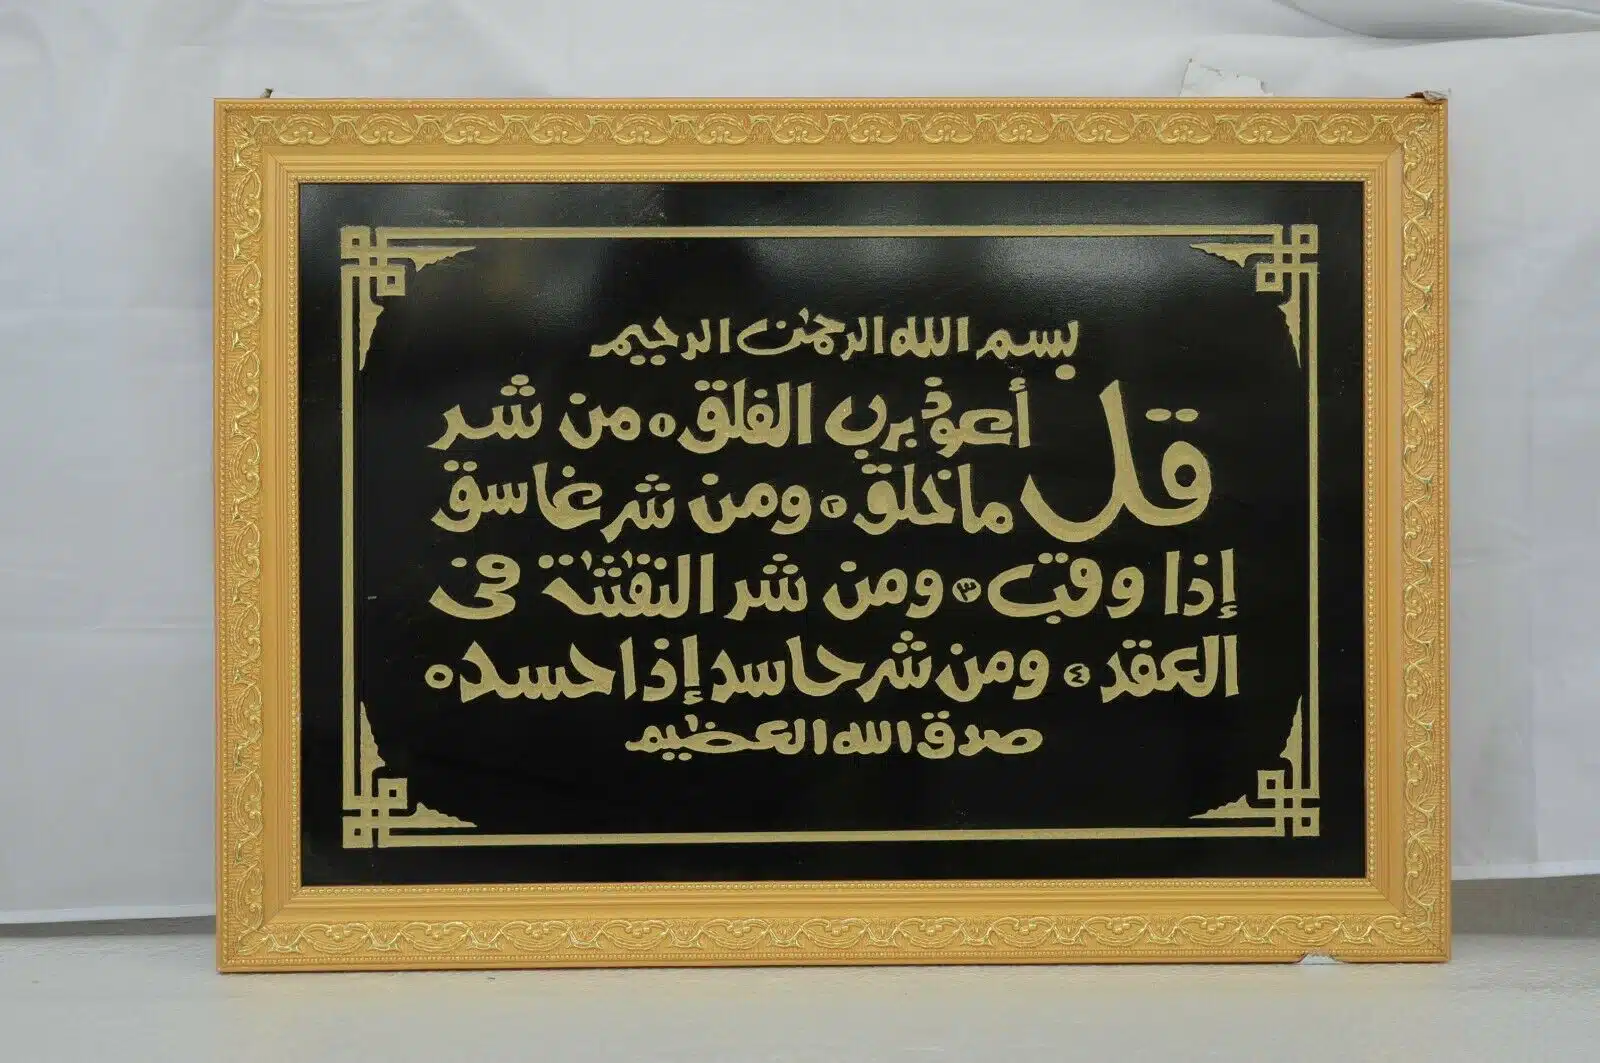 بسم الله الرحمٰن الرحيم
قل أعوذ برب الفلق ١ من شر
ما خلق ٢ ومن شر غاسق
إذا وقب ٣ ومن شر النفّٰثٰت فى
العقد ٤ ومن شر حاسد إذا حسد ٥
صدق الله العظيم